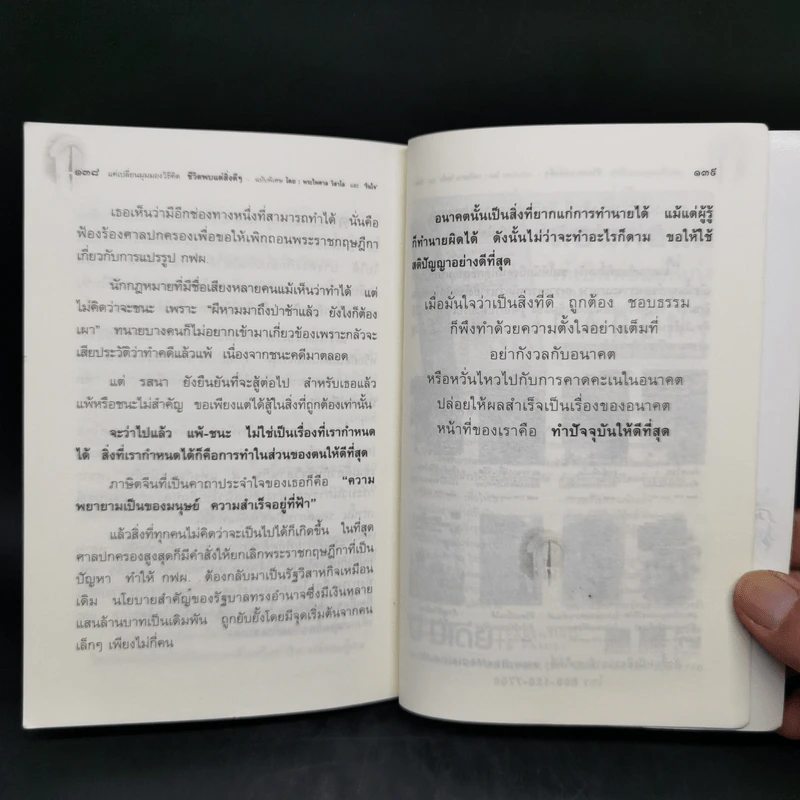 ๑๓๘ แค่เปลี่ยนมุมมองวิธีคิด ชีวิตพบแต่สิ่งดีๆ - ฉบับพิเศษ โดย : พระไพศาล วิสาโล และ
เธอเห็นว่ามีอีกช่องทางหนึ่งที่สามารถทำได้ นั่นคือ
ฟ้องร้องศาลปกครองเพื่อขอให้เพิกถอนพระราชกฤษฎีกา
เกี่ยวกับการแปรรูป กฟผ.
นักกฎหมายที่มีชื่อเสียงหลายคนแม้เห็นว่าทำได้ แต่
ไม่คิดว่าจะชนะ เพราะ "ผีหามมาถึงป่าช้าแล้ว ยังไงก็ต้อง
เผา" ทนายบางคนก็ไม่อยากเข้ามาเกี่ยวข้องเพราะกลัวจะ
เสียประวัติว่าทำคดีแล้วแพ้ เนื่องจากชนะคดีมาตลอด
แต่ รสนา ยังยืนยันที่จะสู้ต่อไป สำหรับเธอแล้ว
แพ้หรือชนะไม่สำคัญ ขอเพียงแต่ได้สู้ในสิ่งที่ถูกต้องเท่านั้น
จะว่าไปแล้ว แพ้-ชนะ ไม่ใช่เป็นเรื่องที่เรากำหนด
ได้ สิ่งที่เรากำหนดได้ก็คือการทำในส่วนของตนให้ดีที่สุด
ภาษิตจีนที่เป็นคาถาประจำใจของเธอก็คือ "ความ
พยายามเป็นของมนุษย์ ความสำเร็จอยู่ที่ฟ้า"
แล้วสิ่งที่ทุกคนไม่คิดว่าจะเป็นไปได้ก็เกิดขึ้น ในที่สุด
ศาลปกครองสูงสุดก็มีคำสั่งให้ยกเลิกพระราชกฤษฎีกาที่เป็น
ปัญหา ทำให้ กฟผ. ต้องกลับมาเป็นรัฐวิสาหกิจเหมือน
เดิม นโยบายสำคัญของรัฐบาลทรงอำนาจซึ่งมีเงินหลาย
แสนล้านบาทเป็นเดิมพัน ถูกยับยั้งโดยมีจุดเริ่มต้นจากคน
เล็กๆ เพียงไม่กี่คน
๑๓๙
อนาคตนั้นเป็นสิ่งที่ยากแก่การทำนายได้ แม้แต่ผู้รู้
ก็ทำนายผิดได้ ดังนั้นไม่ว่าจะทำอะไรก็ตาม ขอให้ใช้
สติปัญญาอย่างดีที่สุด
เมื่อมั่นใจว่าเป็นสิ่งที่ดี ถูกต้อง ชอบธรรม
ก็พึงทำด้วยความตั้งใจอย่างเต็มที่
อย่ากังวลกับอนาคต
หรือหวั่นไหวไปกับการคาดคะเนในอนาคต
ปล่อยให้ผลสำเร็จเป็นเรื่องของอนาคต
หน้าที่ของเราคือ ทำปัจจุบันให้ดีที่สุด